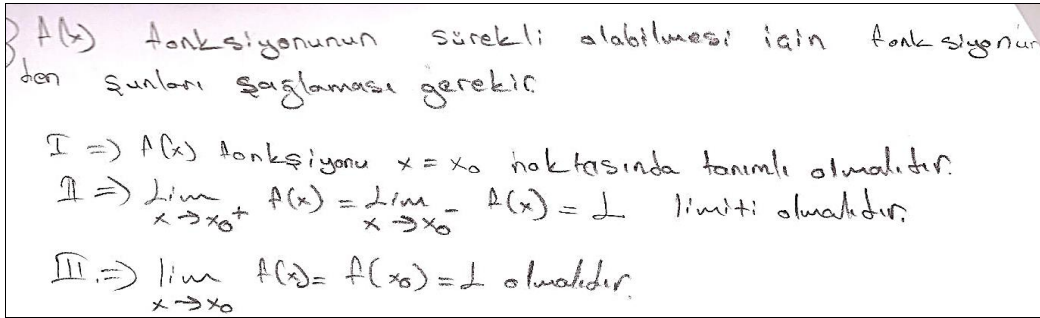 f(x) fonksiyonunun sürekli olabilmesi için fonksiyonun
den şunları şağlaması gerekir.
I => f(x) fonkşiyonu x = x₀ noktasında tanımlı olmalıdır.
II => Lim x→x₀⁺ f(x) = Lim x→x₀⁻ f(x) = L limiti olmalıdır.
III. => lim x→x₀ f(x) = f(x₀) = L olmalıdır.